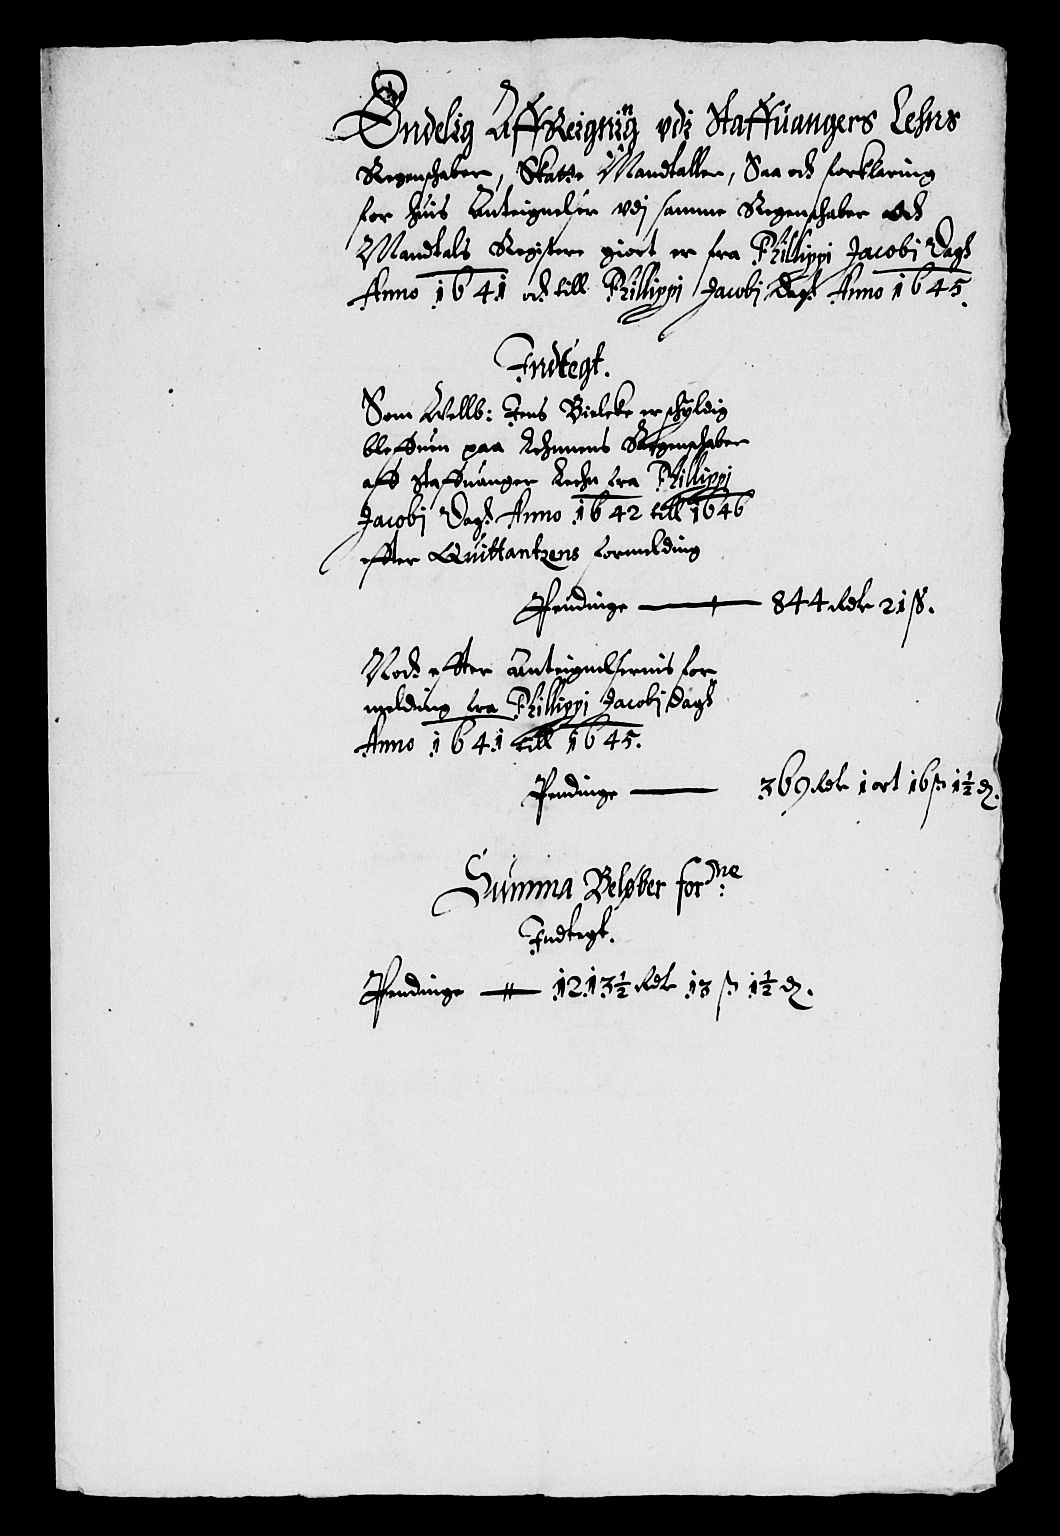 Endelig AffReigning vdj Staffuangers Lehns
Regenschaber, Skatte Mandtaller, Saa och forklaring
for huis Anteignelser vdj samme Regenschaber och
Mandtals Registere giort er fra Phillippi Jacobj Dagh
Anno 1641 och till Phillippi Jacobj Dagh Anno 1645.
Indtegt.
Som Wellb: Jens Bielcke er schyldig
bleffuen paa Lehnnens Regenschaber
aff Staffuanger Lehn fra Phillippi
Jacobj Dagh Anno 1642 till 1646
effter Quittantzens formelding
Pendinge — 844 Rdlr 21 ß.
Noch effter Anteignelsernis for
melding fra Phillippi Jacobj Dagh
Anno 1641 till 1645.
Pendinge — 369 Rdlr 1 ort 16 ß 1½ ₰.
Summa Beløber for:ne
Indtegt.
Pendinge — 1213½ Rdlr 13 ß 1½ ₰.